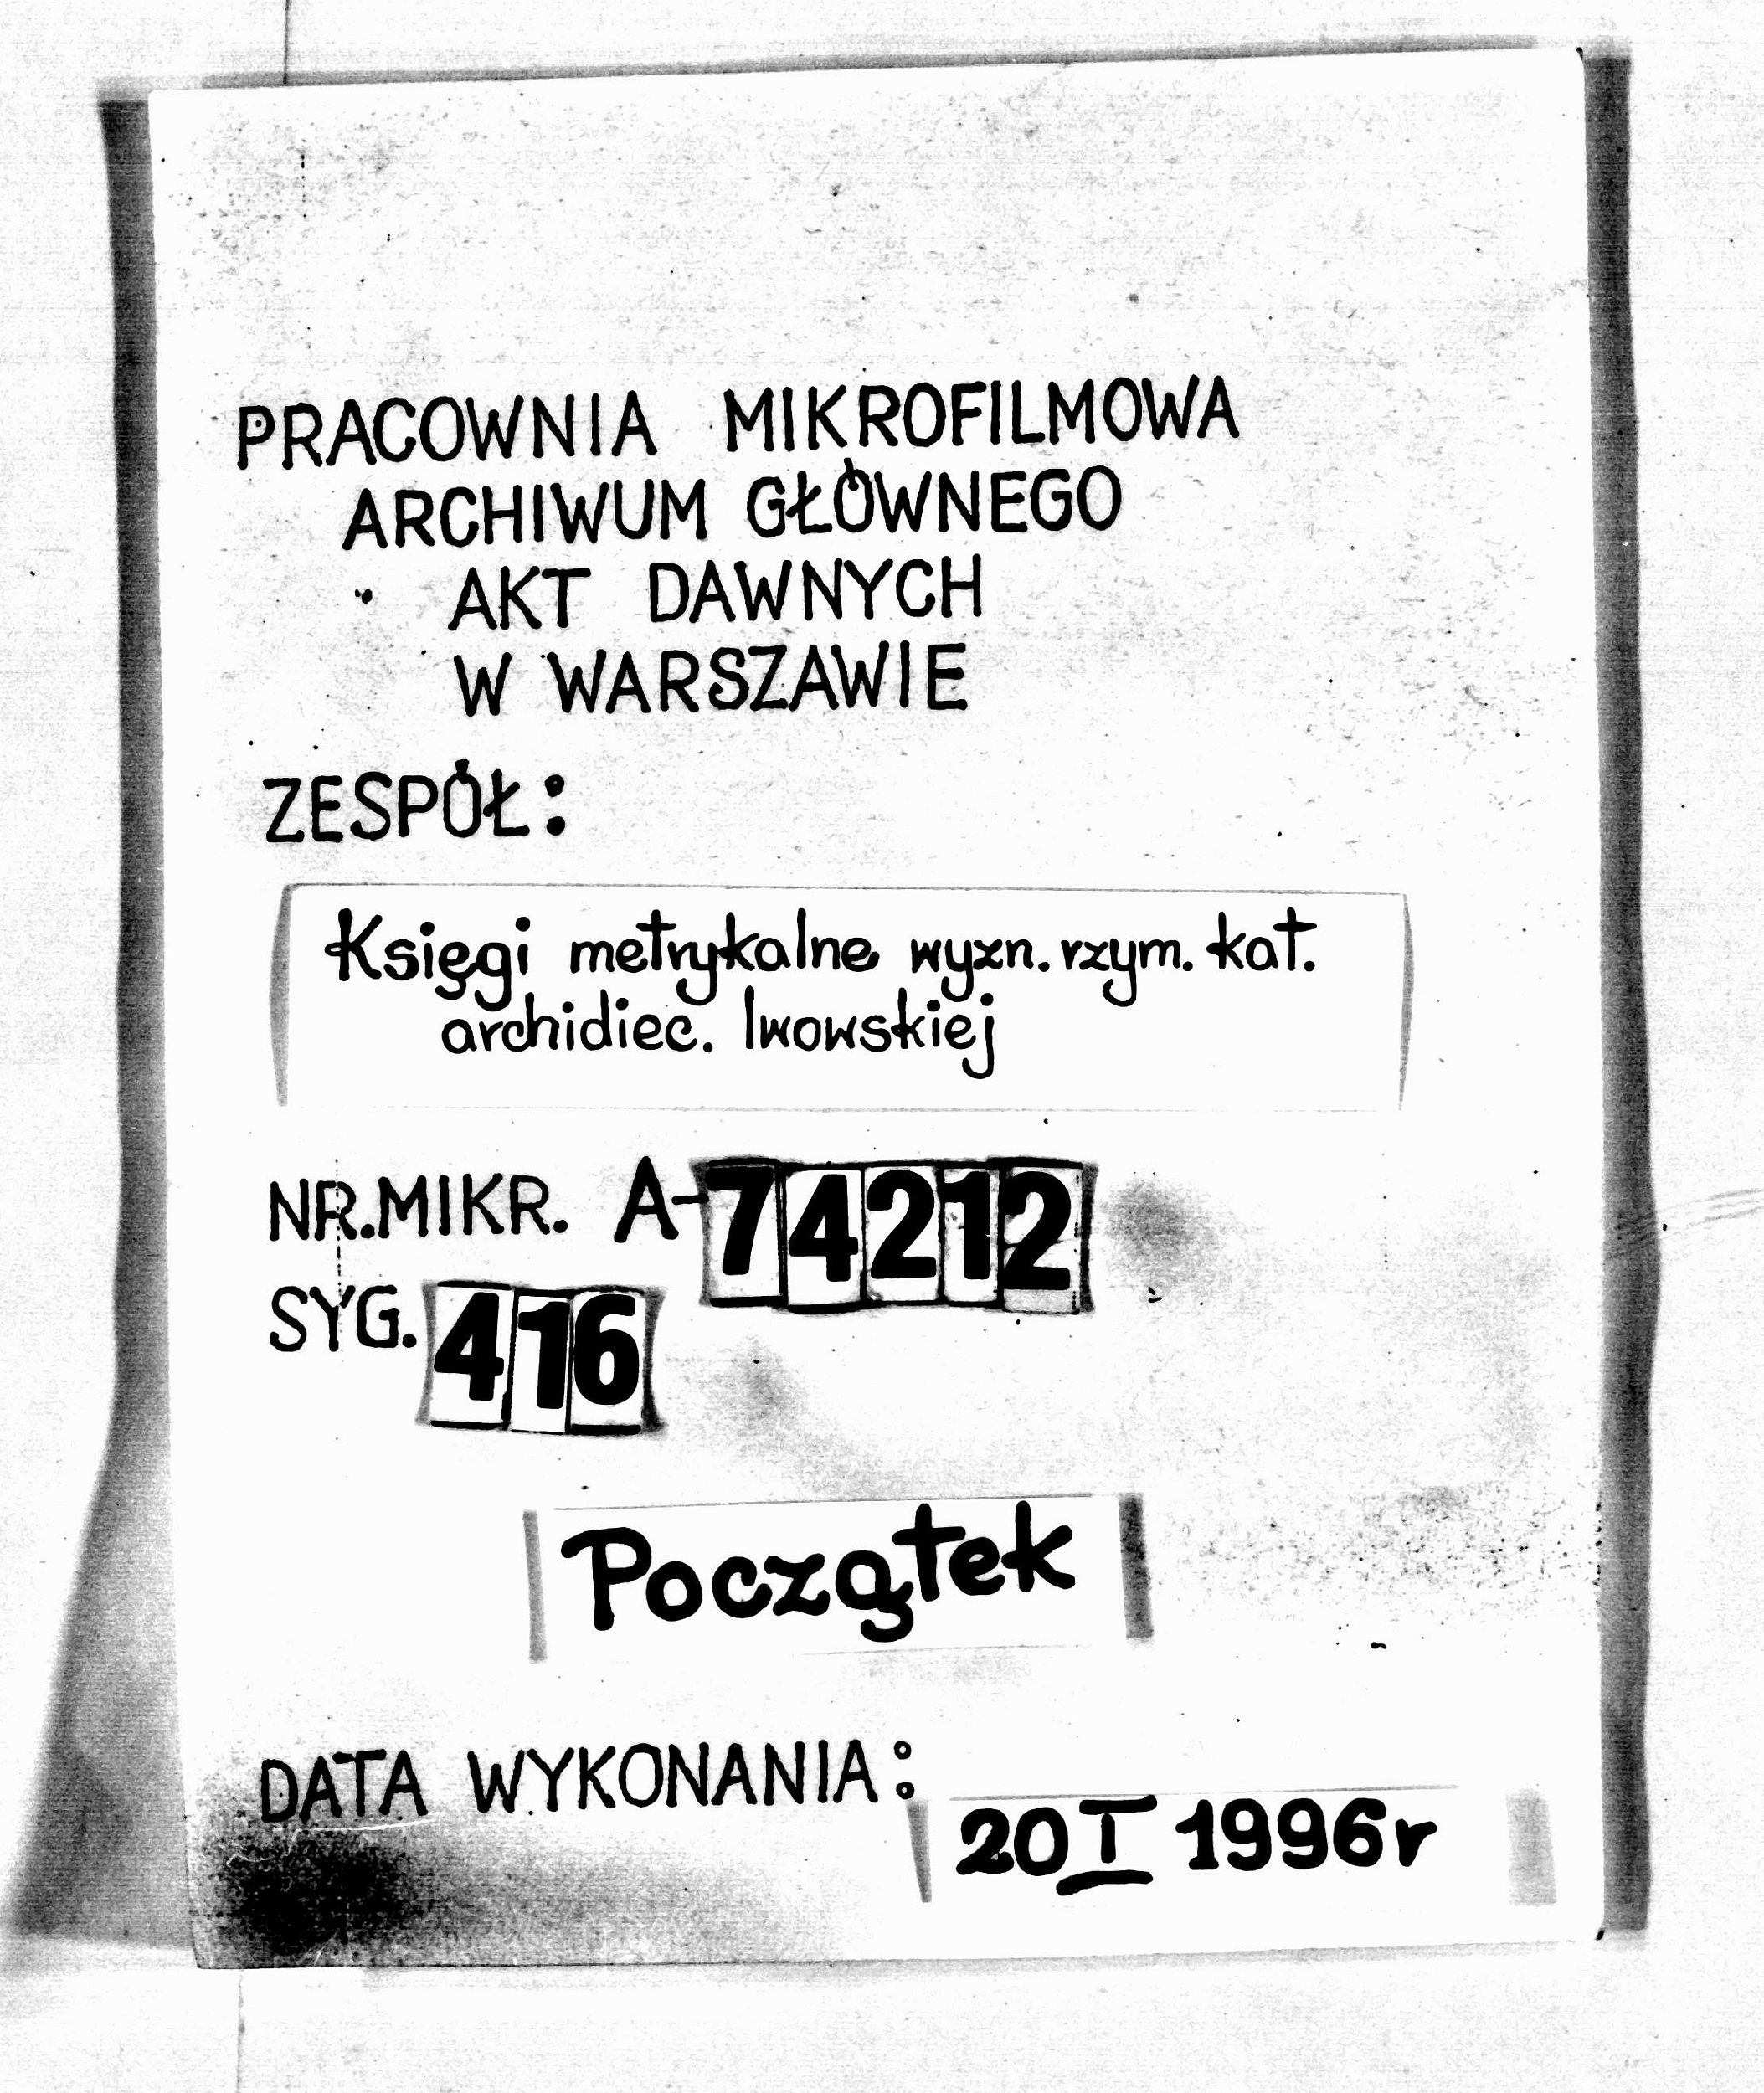 PRACOWNIA MIKROFILMOWA
ARCHIWUM GŁÓWNEGO
AKT DAWNYCH
W WARSZAWIE
ZESPÓŁ:
Księgi metrykalne wyzn. rzym. kat.
archidiec. lwowskiej
NR.MIKR. A-74212
SYG. 416
Początek
DATA WYKONANIA: 20 I 1996r